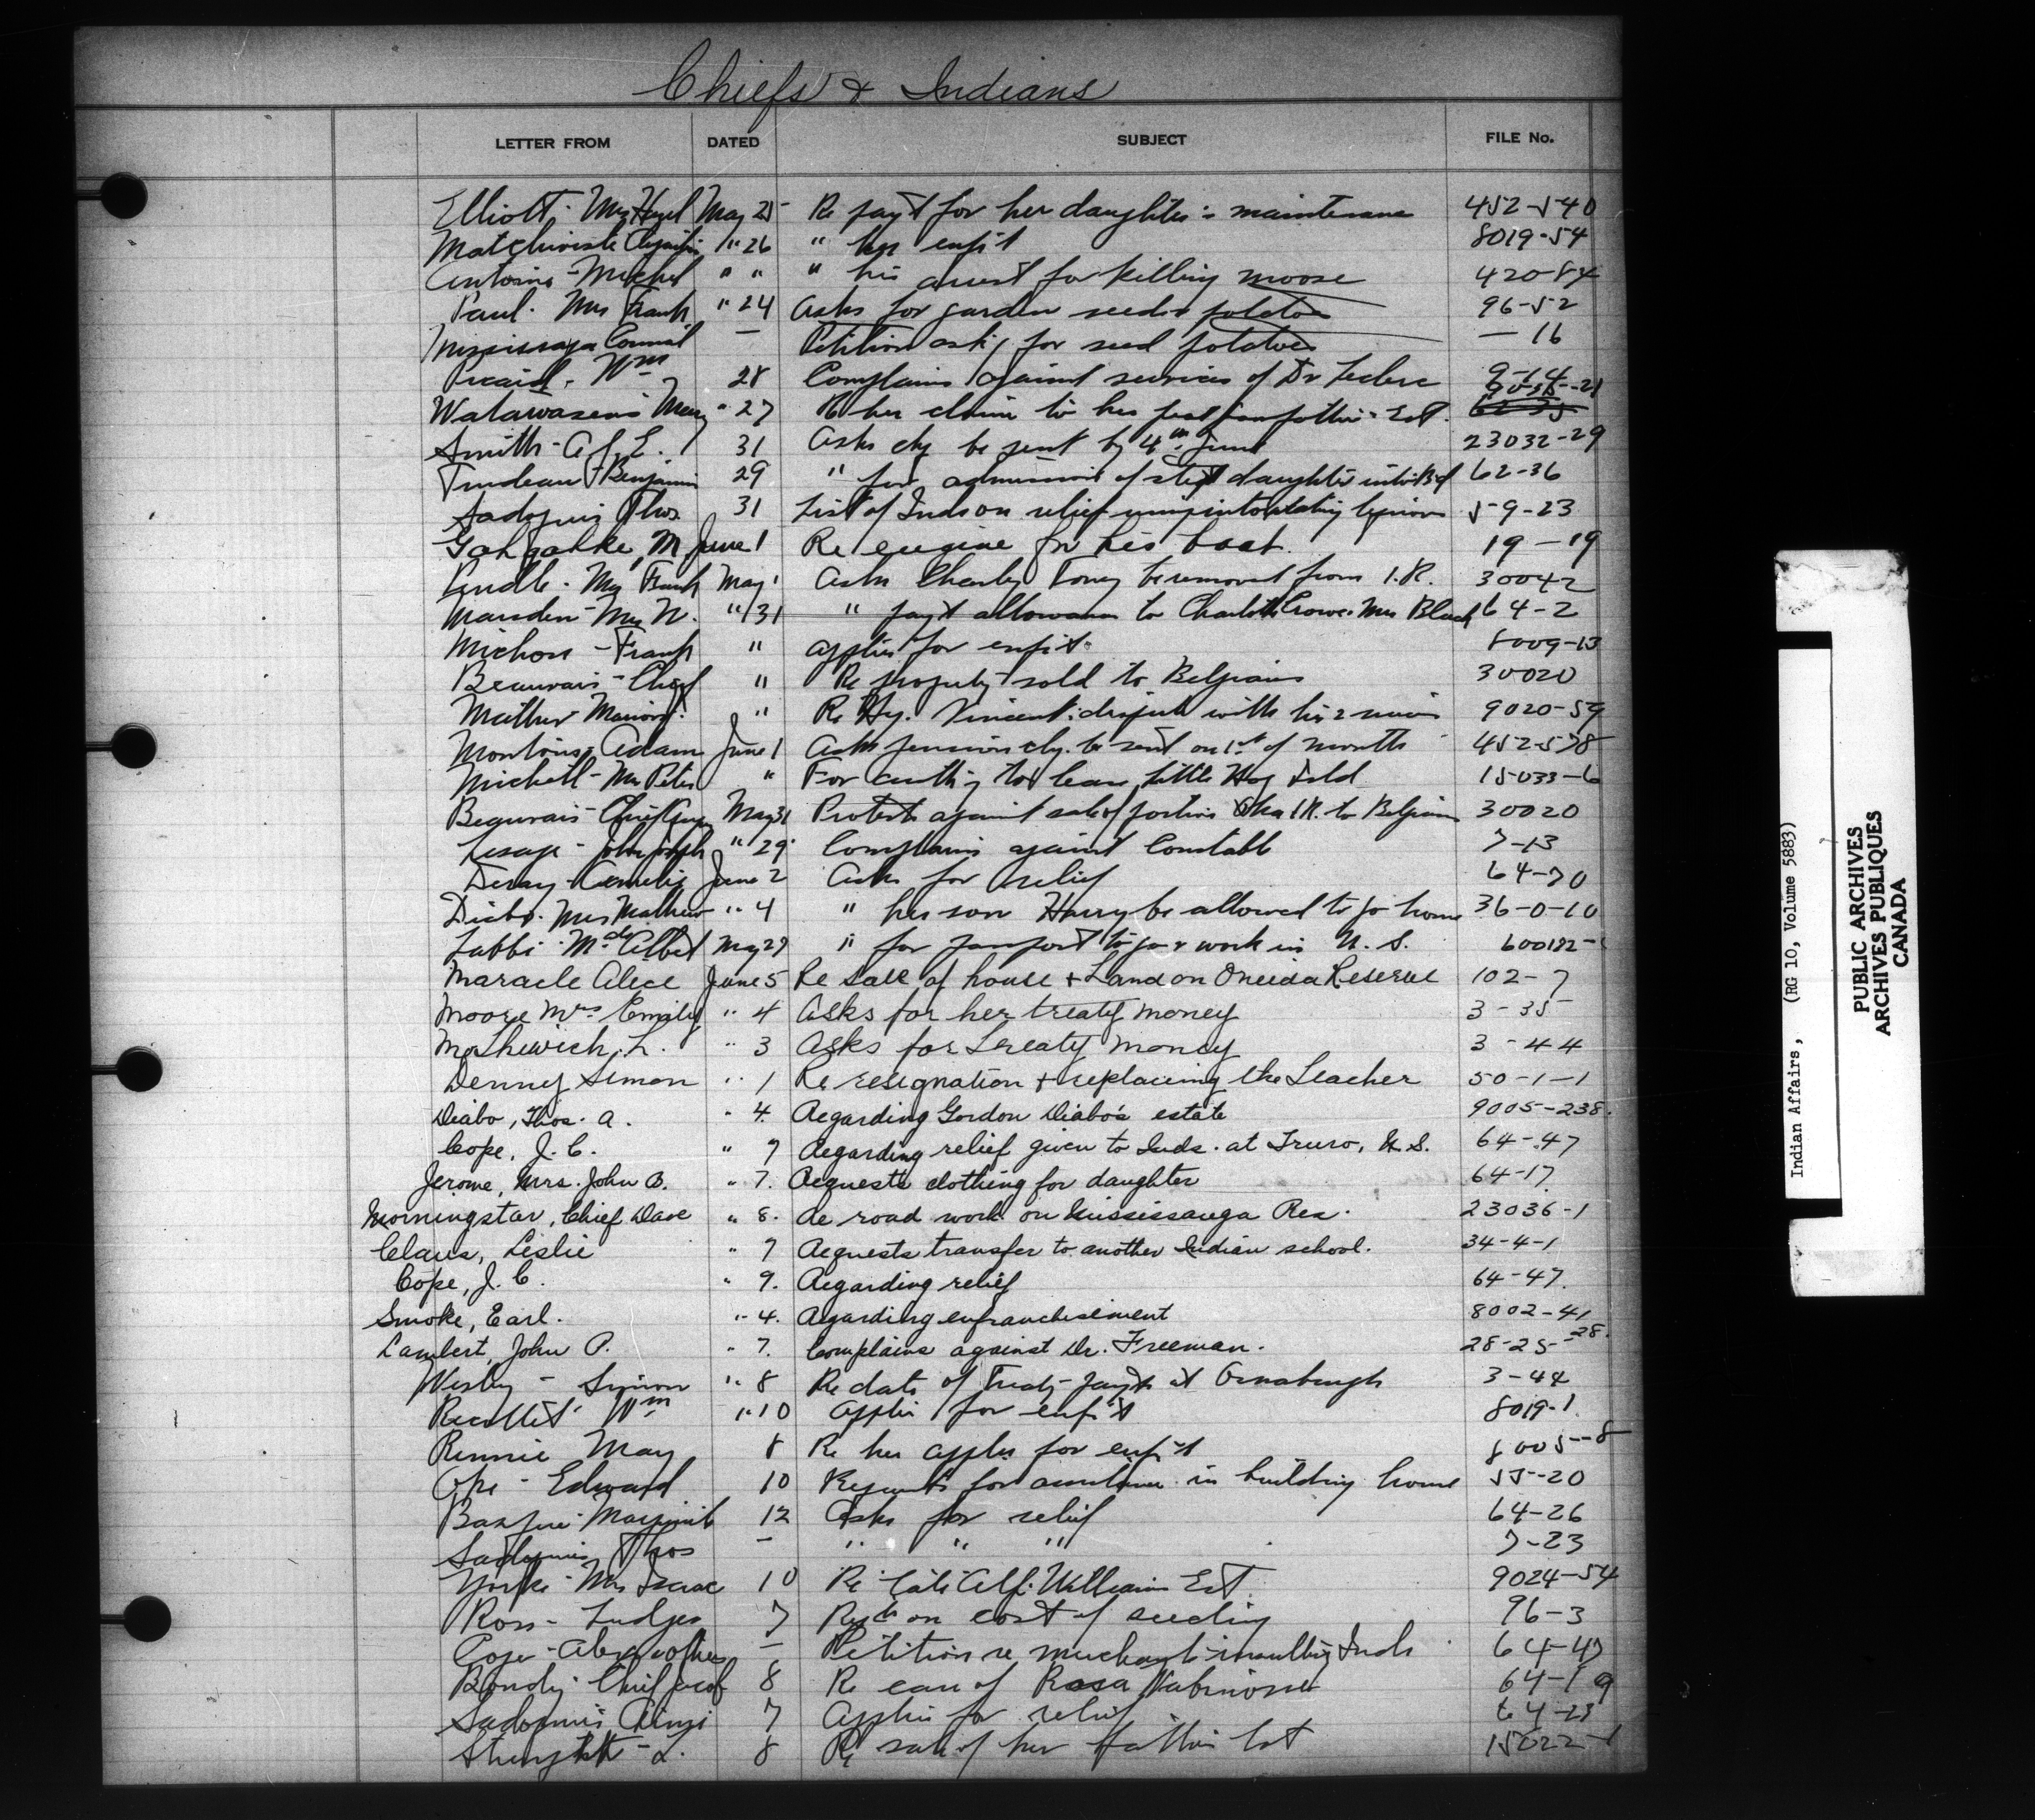 Chiefs & Indians
LETTER FROM DATED SUBJECT FILE No.
Elliott, Mrs Hazel May 25 Re pay't for her daughter's maintenance 452-540
" 26 " her enf't 8019-54
Antoine - Michel " " " his arrest for killing moose 420-84
Paul - Mrs Frank " 24 Asks for garden seeds & potatoes 96-52
Mississaga Council — Petition ask'g for seed potatoes — 16
Picard - Wm 28 Complains against services of Dr Leclerc 9-14
Mary " 27 Re her claim to her father's Est.
Smith - A 31 Asks chq be sent by 4th June 23032-29
Trudeau - Benjamin 29 " for admission of step daughter into 62-36
Thos. 31 List of Inds on relief 5-9-23
Gahgahke, M June 1 Re engine for his boat. 19-19
Mrs Frank May 1 Asks Charley Toney be removed from I.R. 30042
Marsden - Mrs N. " 31 " pay't allowance to Charlotte Crowe Mrs Black 64-2
Michon - Frank " Applies for enf't 8009-13
Beauvais - Chief " Re property sold to Belgians 30020
Mather " Re Hy. Vincent's dispute with his 9020-59
Adam June 1 Asks pension chq. be sent on 1st of month 452-578
Michell - Mrs Peter " For auth'y to lease little Hog Isld 15033-6
Beauvais - Chief May 31 Protests against sale of portion I.R. to Belgians 30020
Lesage - John Joseph " 29 Complains against Constable 7-13
June 2 Asks for relief 64-70
Diabo - Mrs Mathew " 4 " her son Harry be allowed to go home 36-0-10
Labbi - Md. Albert May 29 " for passport to go & work in U.S. 600182-
Maracle Alece June 5 Re sale of house & Land on Oneida Reserve 102-7
Moore Mrs Emily " 4 Asks for her treaty money 3-35
L. " 3 Asks for treaty money 3-44
Denny Simon " 1 Re resignation & replacing the Teacher 50-1-1
Diabo, Thos. A. " 4. Regarding Gordon Diabo's estate 9005-238.
Cope, J. C. " 7 Regarding relief given to Inds. at Truro, N.S. 64-47
Jerome, Mrs. John B. " 7. Requests clothing for daughter 64-17.
Morningstar, Chief Dave " 8. Re road work on Mississauga Res. 23036-1
Claus, Leslie " 7 Requests transfer to another Indian school. 34-4-1
Cope, J. C. " 9. Regarding relief 64-47.
Smoke, Earl. " 4. Regarding enfranchisement 8002-41
Lambert, John P. " 7. Complains against Dr. Freeman. 28-25-28.
Wesley - Simon " 8 Re date of Treaty pay'ts at 3-44
Recollet Wm " 10 Applies for enf't 8019-1
Rennie May 8 Re her appl'n for enf't 8005-8
Edward 10 Requests for assistance in building home 55-20
12 Asks for relief 64-26
Thos — " " " 7-23
Yorke - Mrs Isaac 10 Re late Alf. Williams Est. 9024-54
Ross - 7 on cost of seeding 96-3
— Petition re merchants insulting Inds 64-47
Chief Jacob 8 Re care of Rosa 64-19
7 Applies for relief 64-23
L. 8 Re sale of her father's lot 15022-1
Indian Affairs, (RG 10, Volume 5883)
PUBLIC ARCHIVES
ARCHIVES PUBLIQUES
CANADA